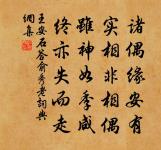 諸偶緣安有
實相非相偶
雖神如季咸
終亦失而走
王安石答俞秀老詞典
網集